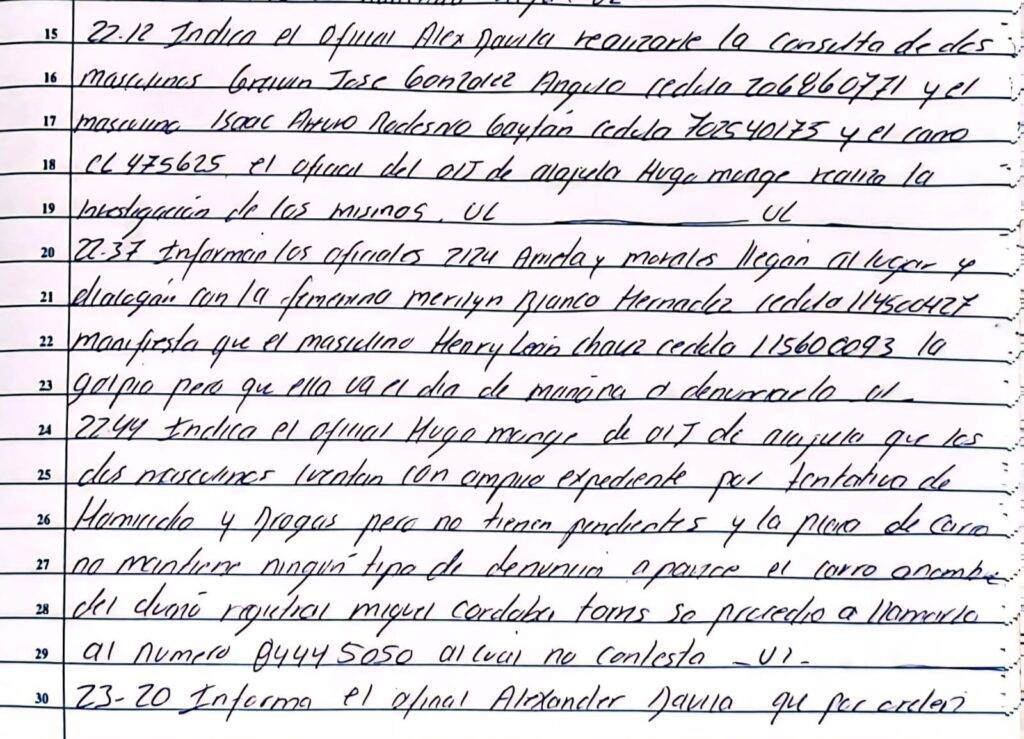 15 22-12 Indica el oficial Alex Davila realizarle la consulta de dos
16 masculinos Jose Gonzalez Angulo cedula 206860771 y el
17 masculino Isaac Arturo Gaytán cedula 702540173 y el carro
18 CL 475625 el oficial del OIJ de alajuela Hugo monge realiza la
19 Investigación de los mismos. UL UL
20 22-37 Informan los oficiales 2124 Arrieta y morales llegan al lugar y
21 dialogan con la femenina merilyn Blanco Hernadez cedula 114500427
22 manifiesta que el masculino Henry León chavz cedula 115600093 la
23 golpio pero que ella va el dia de mañana a denunciarlo ul
24 22-44 Indica el oficial Hugo monge de OIJ de alajuela que los
25 dos masculinos cuentan con amplio expediente por tentativa de
26 Homicidio y Drogas pero no tienen pendientes y la placa de carro
27 no mantiene ningún tipo de denuncia aparece el carro anombre
28 del dueño registral miguel cordoba se procedio a llamarlo
29 al numero 84445050 al cual no contesta
30 23-20 Informa el oficial Alexander Davila que por orden